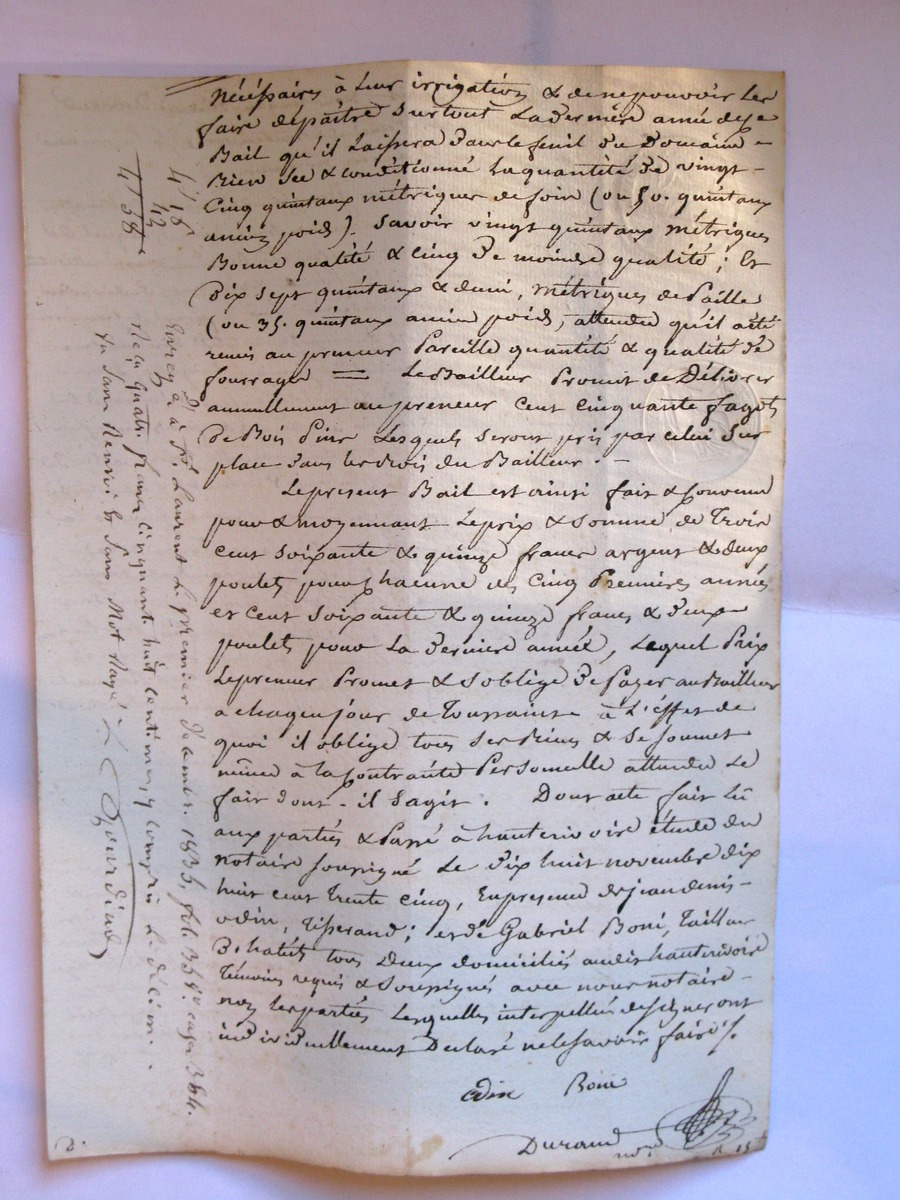 nécéssaires à leur irrigation & de ne pouvoir les
faire dépaître surtout la dernière année de ce
Bail qu'il Laissera dans le fenil du Domaine
Bien sec & conditionné la quantité de vingt-
Cinq quintaux métriques de foin (ou 50. quintaux
ancien poids). Savoir vingt quintaux métriques
Bonne qualité & cinq de moindre qualité; Et
Dix sept quintaux & demi, métriques de Paille
(ou 35. quintaux ancien poids, attendu qu'il a été
remis au preneur Pareille quantité & qualité de
fourrage = Le Bailleur Promet de Délivrer
annuellement au preneur Cent Cinquante fagots
de Bois Pin Lesquels seront pris par celui sur
place dans les Bois du Bailleur. -
Le present Bail est ainsi fait & Convenu
pour & moyennant Le prix & Somme de Trois
Cent soixante & quinze francs argent & deux
poulets pour Chacune des Cinq Premières années
et Cent Soixante & quinze francs & deux
poulets pour La dernière année, Lequel Prix
Le preneur Promet & s'oblige de Payer au Bailleur
a chaque jour de Toussaint à L'effet de
quoi il oblige tous ses Biens & Se soumet
même à la Contrainte Personnelle attendu Le
fait dont-il s'agit. Dont acte fait Lû
aux partiés & Passé à hauterivoire étude du
notaire soussigné Le Dix huit novembre dix
huit cent trente cinq, En presence de jean denis-
odin, Tisserand; et de Gabriel Boni, Tailleur
D'habits tous Deux domiciliés audit hauterivoire
Témoins requis & Soussignés avec nous notaire-
non les partiés Lesquelles interpellées de signer ont
individuellement Déclaré ne le savoir faire /.
odin Boni
Durand nore
4f 18
42
4f 58c
Enregé à St. Laurent Le premier décembre 1835, fol. 35 vo case 3 & 4.
Reçu quatre francs cinquante huit centimes y compris Le décime.